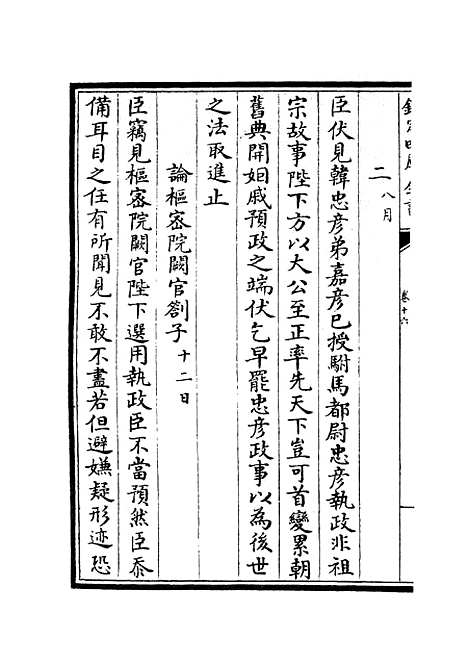 欽定四庫全書
卷十六
二 八月
臣伏見韓忠彥弟嘉彥已授駙馬都尉忠彥執政非祖
宗故事陛下方以大公至正率先天下豈可首變累朝
舊典開姻戚預政之端伏乞早罷忠彥政事以為後世
之法取進止
論樞密院闕官劄子 十二日
臣竊見樞密院闕官陛下選用執政臣不當預然臣忝
備耳目之任有所聞見不敢不盡若但避嫌疑形迹恐